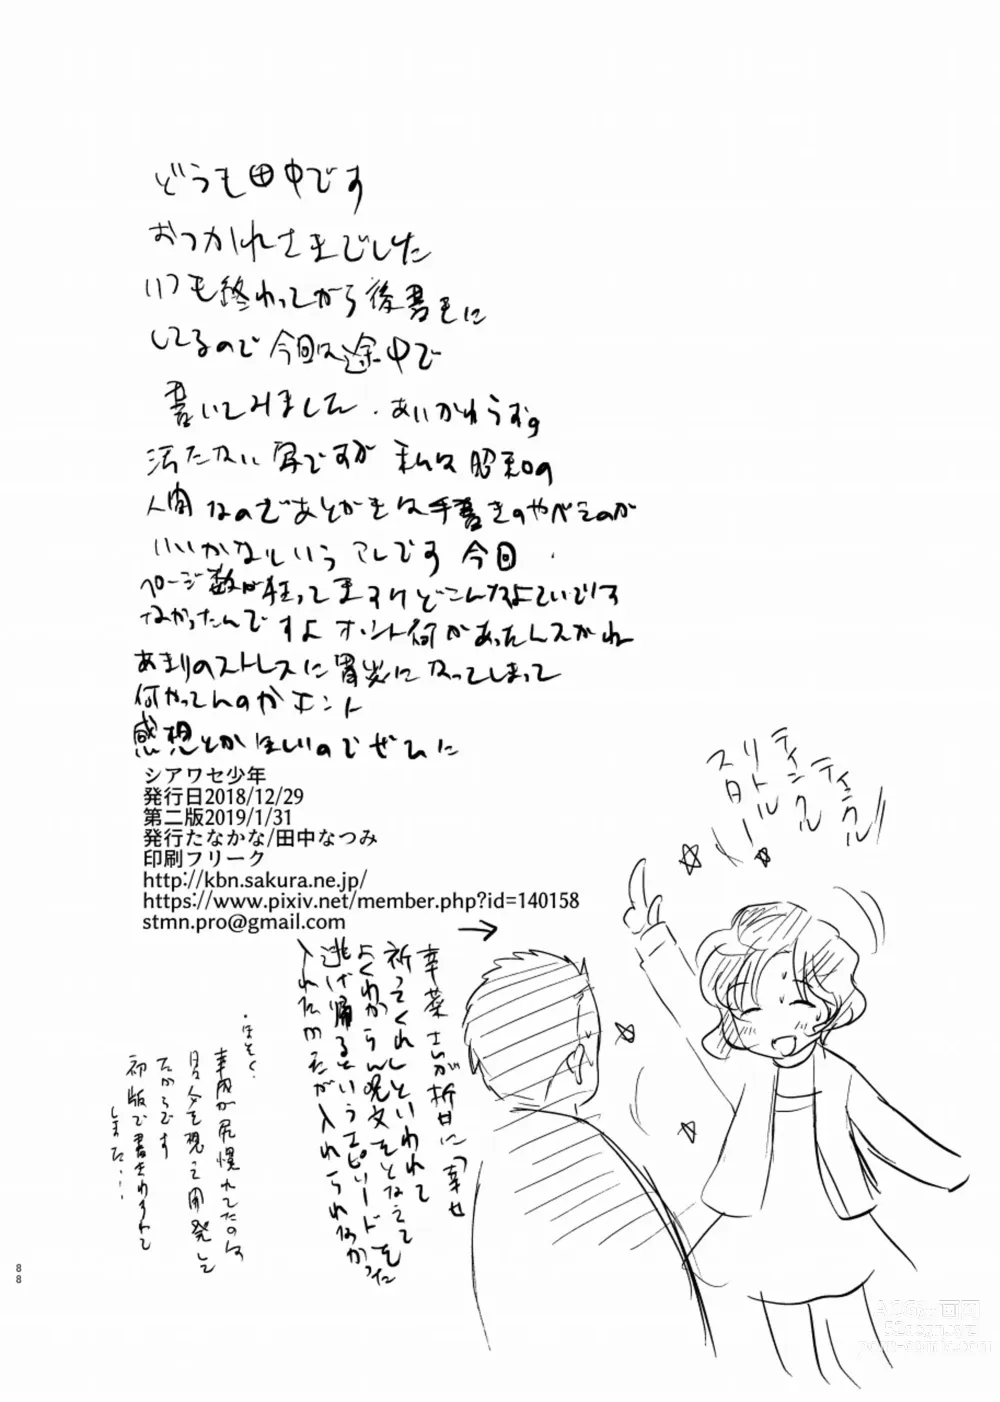 どうも田中です
おつかれさまでした
いつも終わってから後書きに
してるので今回は途中で
書いてみました、あいかわらずの
汚たない字ですが私は昭和の
人間なのであとがきは手書きのやべえのが
いいかなというアレです 今回
ページ数が狂ってますけどこんなよていでは
なかったんですよホント何があったんスかね
あまりのストレスに胃炎になってしまって
何やってんのかホント
感想とかほしいのでぜひに
シアワセ少年
発行日2018/12/29
第二版2019/1/31
発行たなかな/田中なつみ
印刷フリーク
http://kbn.sakura.ne.jp/
https://www.pixiv.net/member.php?id=140158
stmn.pro@gmail.com
ティンクル
ティンクル
リトル
スター
→
祈ってくれといわれて
よくわからん呪文をとなえて
逃げ帰るというエピソードを
入れたかったが入れられなかった
・ほそく・
だからです
初版で書きわすれて
しました…
88